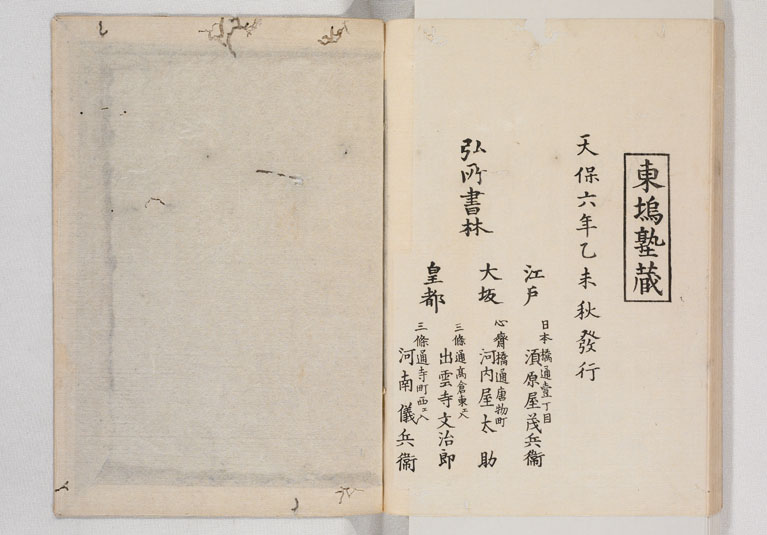 東塢塾蔵
天保六年乙未秋發行
弘所書林
江戸
日本橋通壹丁目
須原屋茂兵衞
大坂
心齋橋通唐物町
河内屋太助
皇都
三條通高倉東ヘ入
出雲寺文治郎
三條通寺町西ヘ入
河南儀兵衞